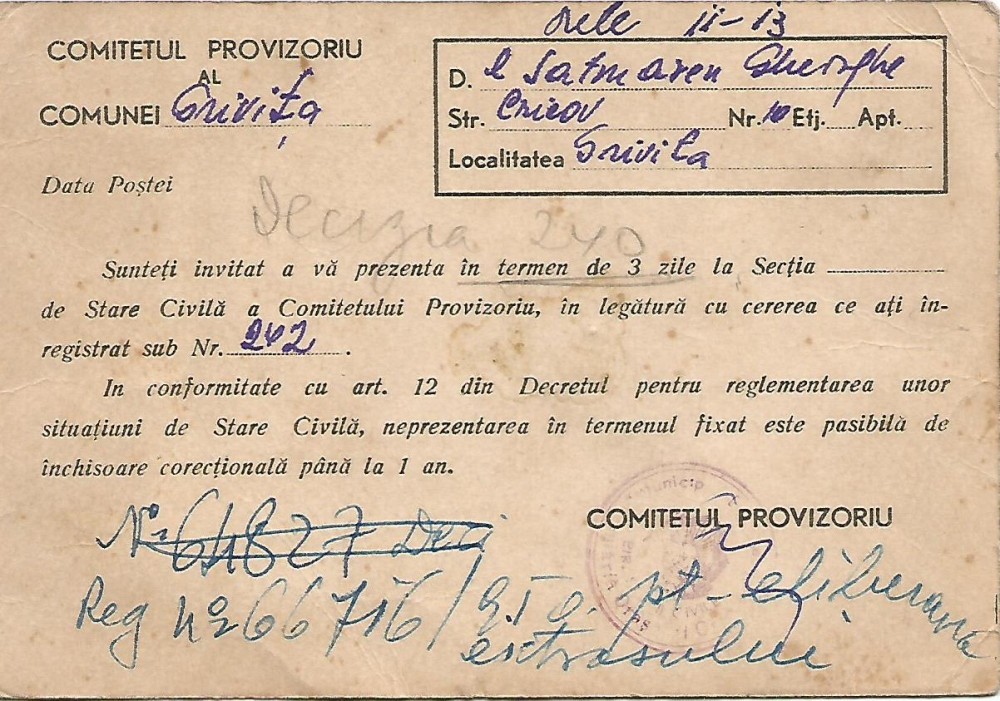 orele 11-13
COMITETUL PROVIZORIU
AL
COMUNEI Grivița
D. l Satmaren Gheorghe
Str. Cricov Nr. 10 Etj. Apt.
Localitatea Grivita
Data Poștei
Decizia 240
Sunteți invitat a vă prezenta în termen de 3 zile la Secția
de Stare Civilă a Comitetului Provizoriu, în legătură cu cererea ce ați în-
registrat sub Nr. 242.
In conformitate cu art. 12 din Decretul pentru reglementarea unor
situațiuni de Stare Civilă, neprezentarea în termenul fixat este pasibilă de
închisoare corecțională până la 1 an.
COMITETUL PROVIZORIU
No 64827
Reg No 66716/ pt. eliberarea
extrasului